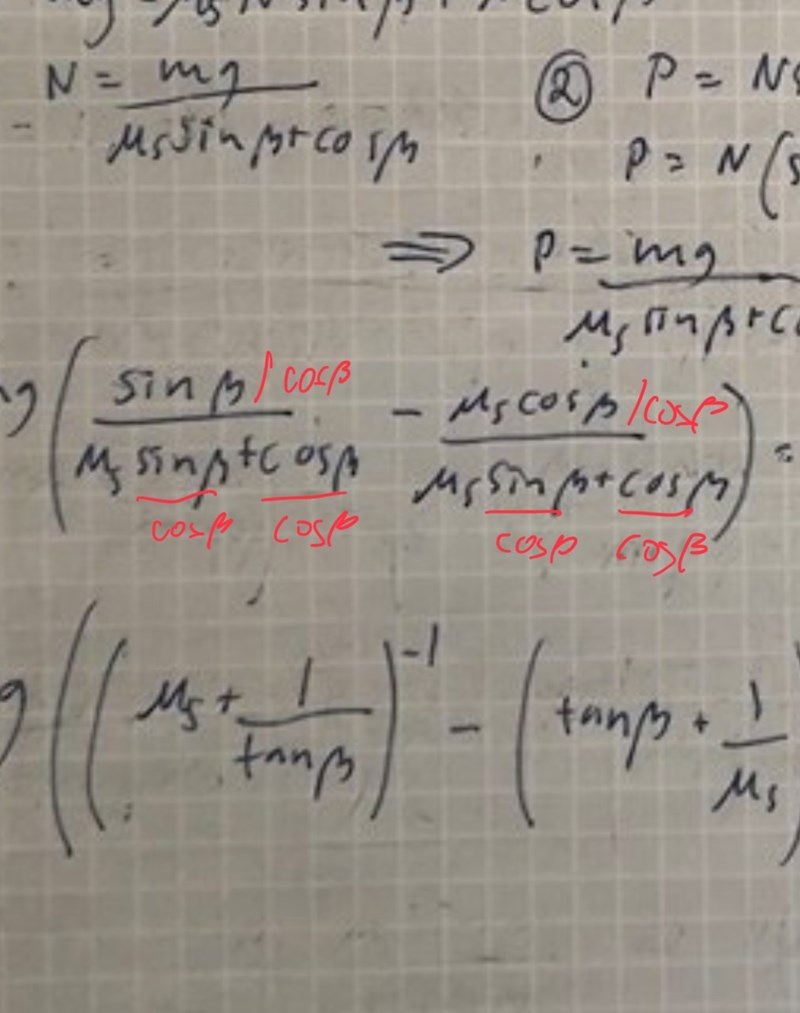 N = mg / μs sin β + cos β
② P = N
P = N (
⇒ P = mg / μs sin β +
g ( sin β / cos β / μs sin β + cos β - μs cos β / cos β / μs sin β + cos β ) =
cos β cos β cos β cos β
g ( ( μs + 1 / tan β )⁻¹ - ( tan β + 1 / μs